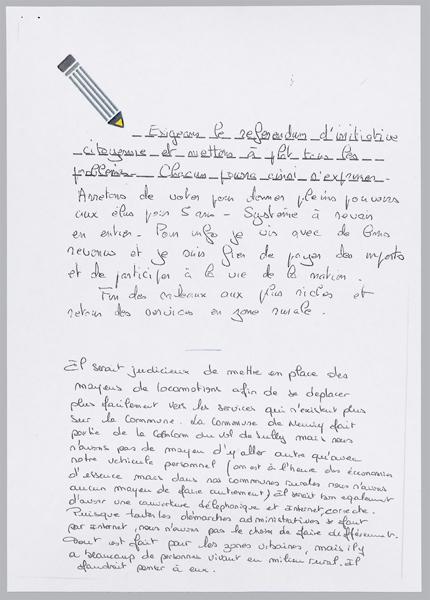 Exigeons le referendum d'initiative
citoyenne et mettons à plat tous les
problèmes. Chacun pourra ainsi s'exprimer.
Arretons de voter pour donner pleins pouvoirs
aux élus pour 5 ans - Système à revoir
en entier. Pour info je vis avec de
revenus et je suis fier de payer des impots
et de participer à la vie de la nation.
Fin des cadeaux aux plus riches et
retour des services en zone rurale.
Il serait judicieux de mettre en place des
moyens de locomotions afin de se deplacer
plus facilement vers les services qui n'existent plus
sur la commune. La commune de Neuvy fait
partie de la ComCom du Val de Sully mais nous
n'avons pas de moyen d'y aller autre qu'avec
notre vehicule personnel (on est à l'heure des économies
d'essence mais dans nos communes rurales nous n'avons
aucun moyen de faire autrement) Il serait bon egalement
d'avoir une couverture téléphonique et Internet correcte.
Puisque toutes les démarches administratives se font
par internet, nous n'avons pas le choix de faire différemment.
Tout est fait pour les zones urbaines, mais il y
a beaucoup de personnes vivant en milieu rural. Il
faudrait penser à eux.